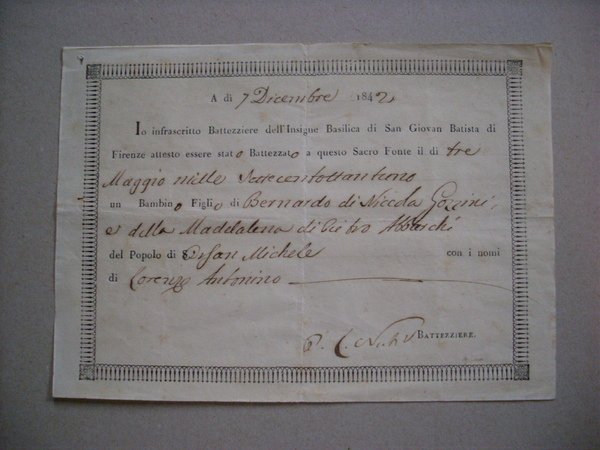 A di 7 Dicembre 1842
Io infrascritto Battezziere dell'Insigne Basilica di San Giovan Batista di
Firenze attesto essere stato Battezzato a questo Sacro Fonte il di tre
Maggio mille
un Bambino Figlio di Bernardo di Niccola
e della Maddalena di Pietro
del Popolo di Orsan Michele con i nomi
di Lorenzo Antonino
P. BATTEZZIERE.